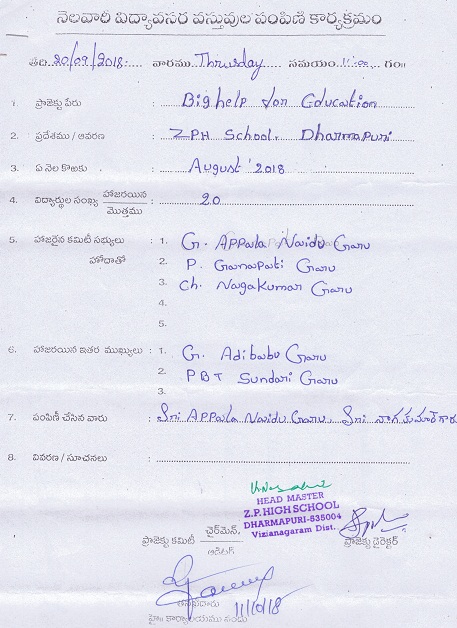 నెలవారీ విద్యావసర వస్తువుల పంపిణి కార్యక్రమం
తేది. 20/09/2018. వారము Thrusday సమయం గం॥
1. ప్రాజెక్టు పేరు : Bighelp for Education
2. ప్రదేశము / ఆవరణ : ZPH School. Dharmapuri
3. ఏ నెల కొఱకు : August '2018
4. విద్యార్థుల సంఖ్య హాజరయిన : 20
మొత్తము
5. హాజరైన కమిటీ సభ్యులు : 1. G. APPala Naidu Garu
హోదాతో 2. P. Ganapati Garu
3. Ch. Nagakumar Garu
4.
5.
6. హాజరయిన ఇతర ముఖ్యులు : 1. G. Adibabu Garu
2. PBT Sundari Garu
3.
7. పంపిణీ చేసిన వారు : Sri APPala Naidu Garu, Sri నాగకుమార్ గారు
8. వివరణ / సూచనలు :
HEAD MASTER
Z.P. HIGH SCHOOL
DHARMAPURI-535004
Vizianagaram Dist.
ప్రాజెక్టు కమిటీ ఛైర్మెన్, ప్రాజెక్టు డైరెక్టర్
ఆడిటర్
11/10/18